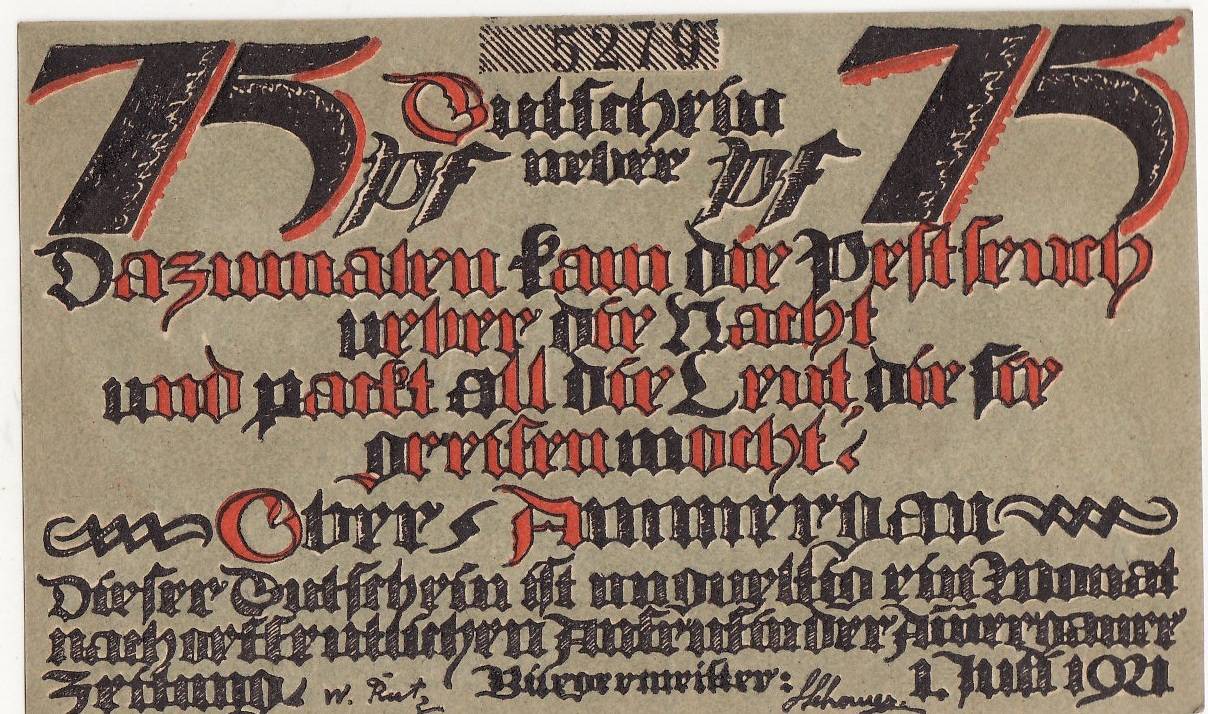 5279
75 Gutschein 75
pf ueber pf
Dazumalen kam die Pestseuch
ueber die Nacht
und packt all die Leut die sie
greifen mocht.
Ober-Ammergau
Dieser Gutschein ist unguyltig ein Monat
nach oeffentlichen Aufruf in der Am̄ergauer
Zeitung. W. Rutz Bürgermeister: 1. Juli 1921